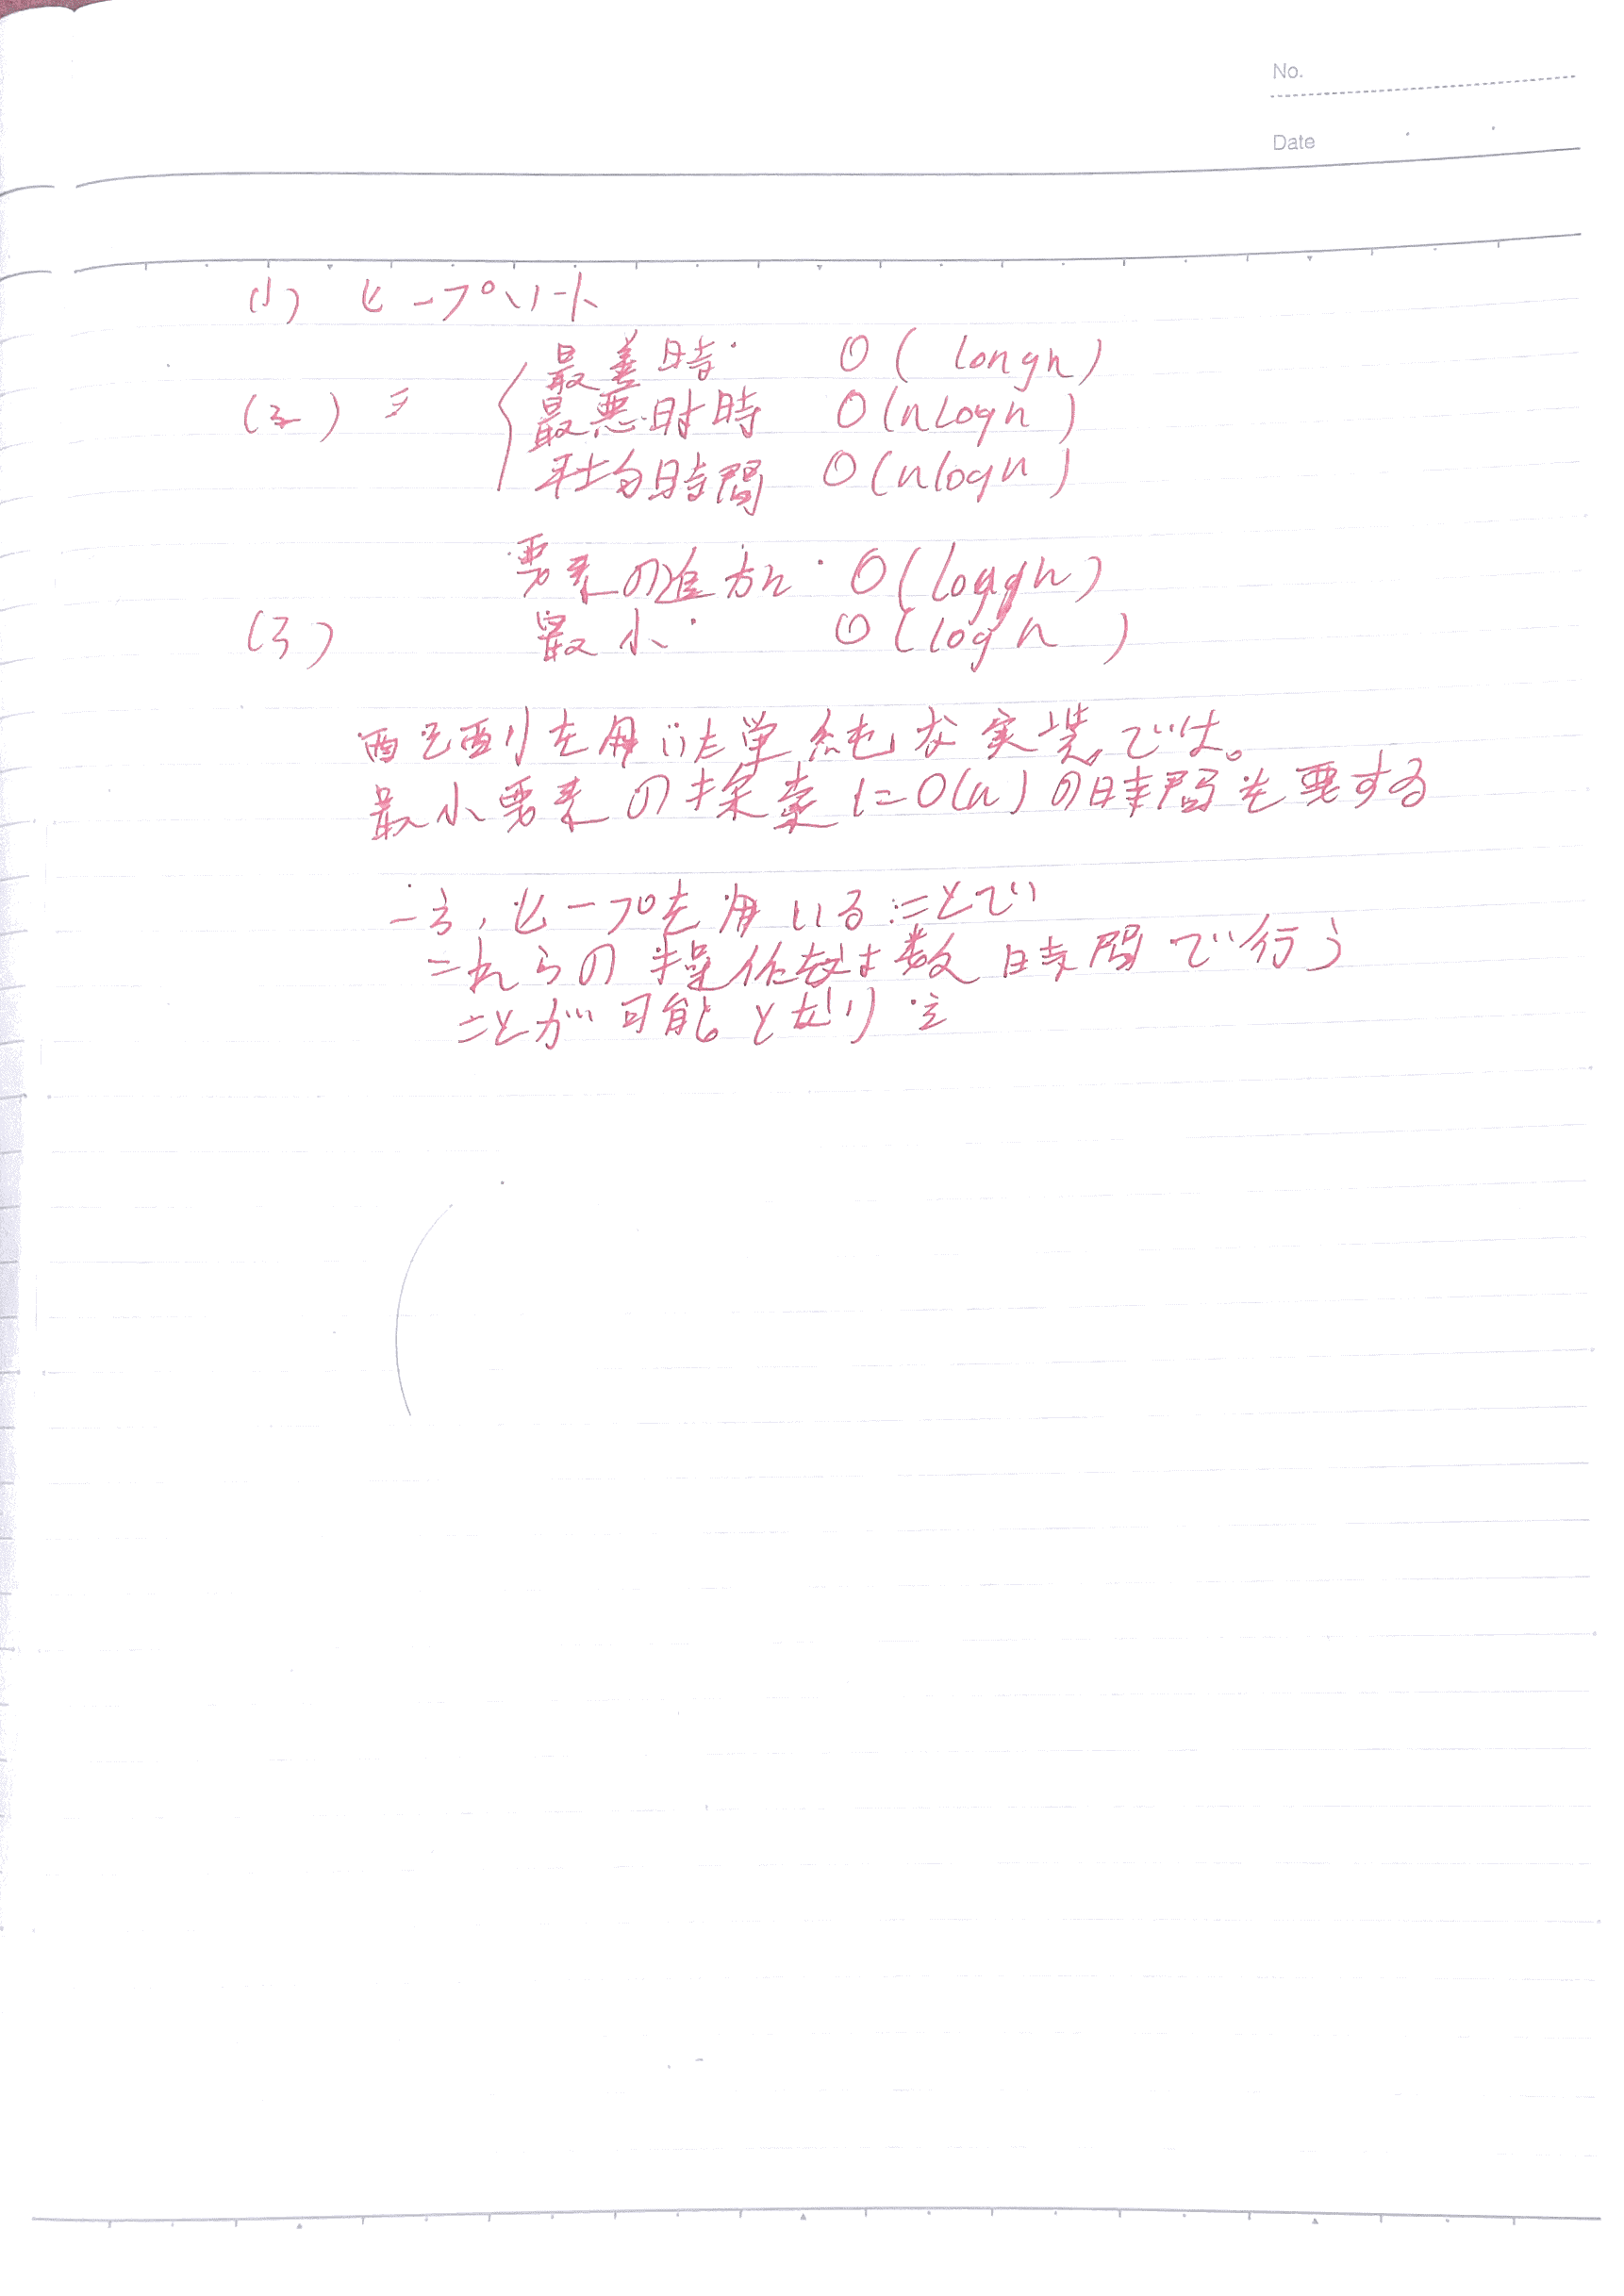 No.
Date
(1) ヒープソート
最善時 O( longn)
(2) 最悪時時 O(nlogn)
平均時間 O(nlogn)
要素の追加 O(loggn)
(3) 最小 O(logn )
配列を用いた単純な実装では。
最小要素の探索にO(n)の時間を要する
一方，ヒープを用いることで
これらの操作 数時間で行う
ことが可能となり